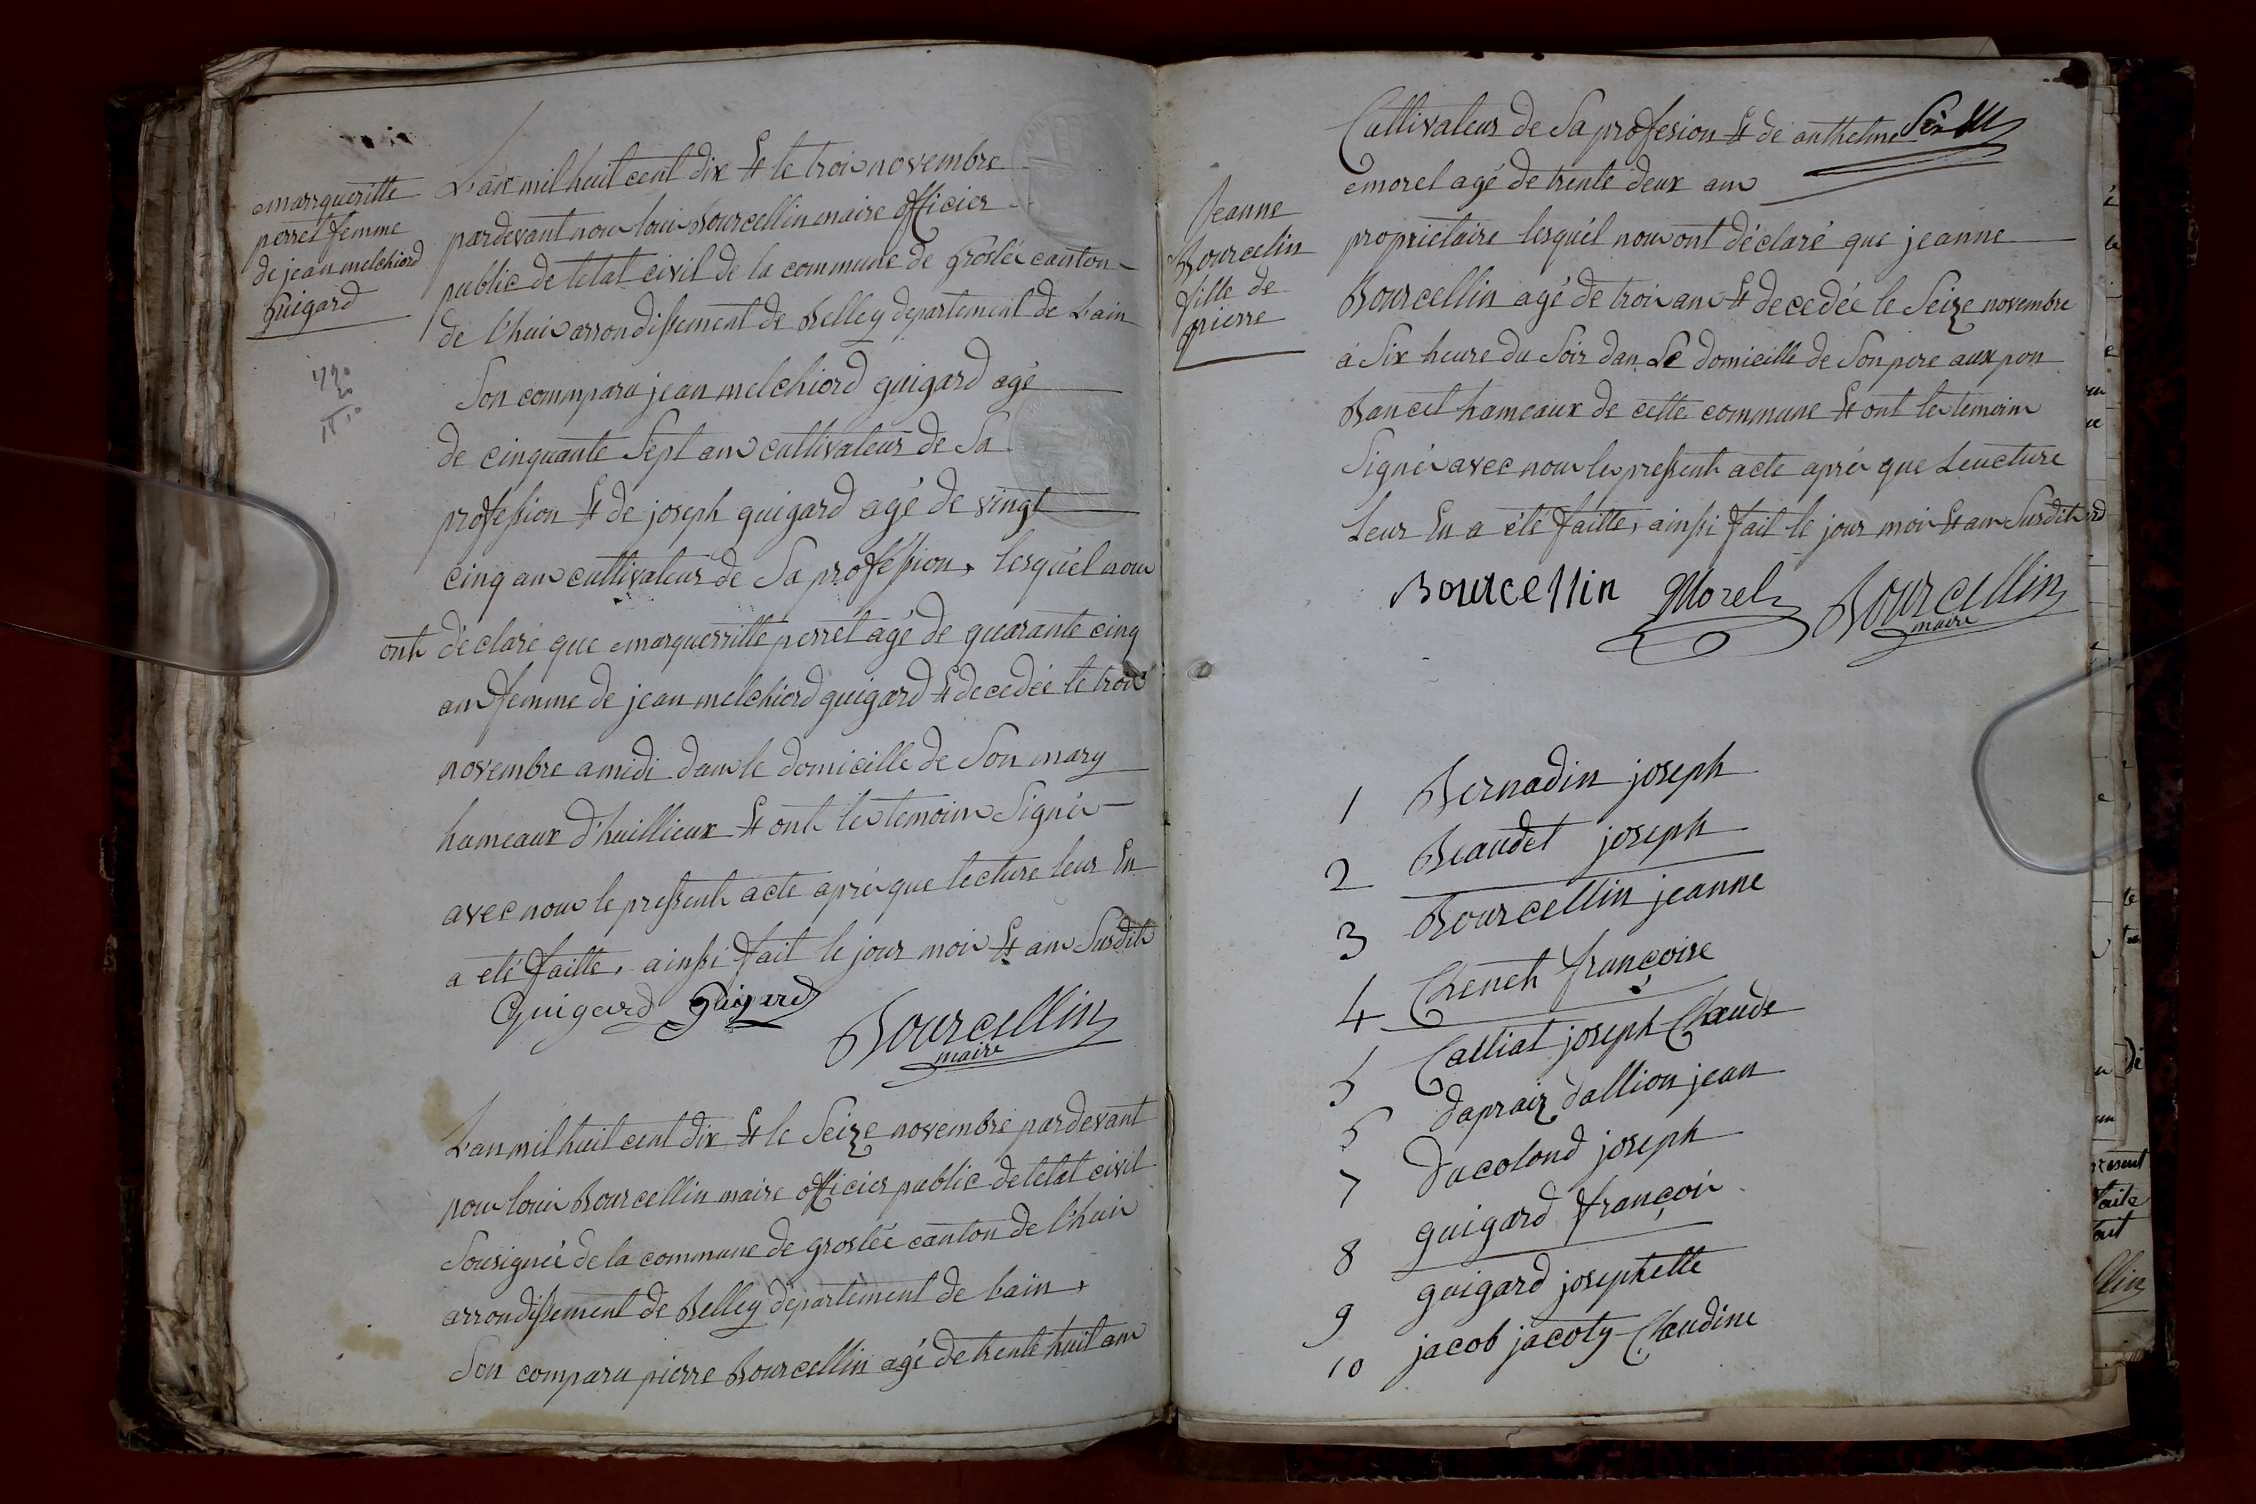 marrgueritte
perret femme
de jean melchiord
guigard
L'an mil huit cent dix Et le troi novembre
pardevant nou loui Bourcellin maire officier
public de letat civil de la commune de groslée canton
de l'hui arrondissement de Belley departement de Lain
Son commparu jean melchiord guigard agé
de cinquante Sept an cultivateur de Sa
profession Et de joseph guigard agé de vingt
cinq an cultivateur de Sa proffession, lesquel nou
ont déclaré que marguerritte perret agé de quarante cinq
an femme de jean melchiord guigard Et decedée le troi
novembre a midi dan le domicille de Son mary
hameaux d'huillieux Et ont le temoin Signé
avec nou le pressent acte apré que lecture leur En
a eté faitte, ainssi fait le jour moi Et an Susdit
Guigard Guigard
Bourcellin
maire
L'an mil huit cent dix Et le Seize novembre pardevant
nou loui Bourcellin maire officier public de letat civil
Sousigneé de la commune de groslée canton de l'hui
arrondissement de Belley departement de Lain,
Son comparu pierre Bourcellin agé de trente huit an
Jeanne
Bourcelin
fille de
pierre
Cultivateur de Sa profesion Et de anthelme
morel agé de trente deux an
propriétaire lesquél nou ont déclaré que jeanne
Bourcellin agé de troi an Et decedée le Seize novembre
á Six heure du Soir dan Le domicille de Son pere aux pon
Bancet hameaux de cette commune Et ont le temoin
Signé avec nou le pressent acte apré que Leucture
Leur En a été faitte, ainssi fait le jour moi Et an Susdit
Bourcellin Morel Bourcellin
maire
1 Bernadin joseph
2 Beaudet joseph
3 Bourcellin jeanne
4 Chenet françoise
5 Calliat joseph Claude
6 dapraiz dallion jean
7 ducolond joseph
8 guigard françoi
9 guigard josephette
10 jacob jacoty Claudine